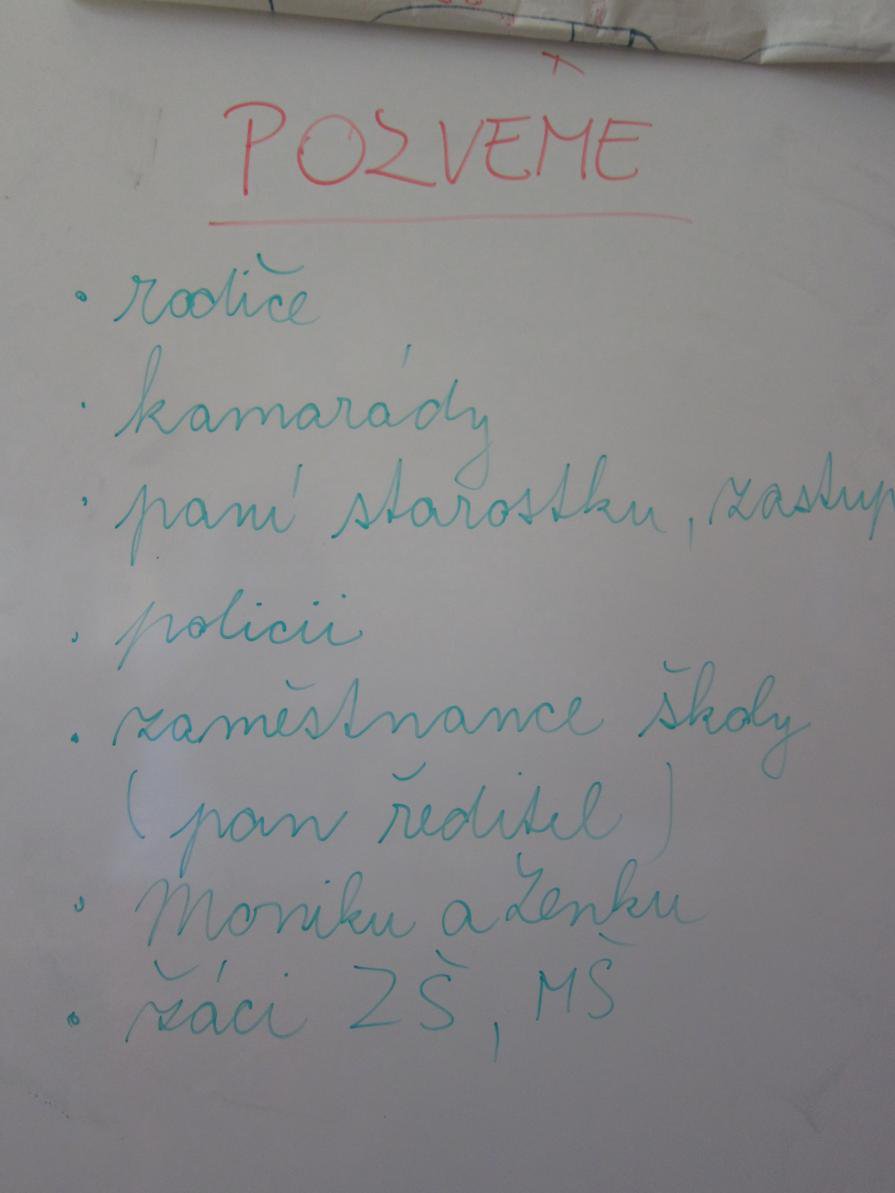 POZVEME
• rodiče
• kamarády
• paní starostku, zastup
• policii
• zaměstnance školy
(pan ředitel)
• Moniku a Lenku
• žáci ZŠ, MŠ